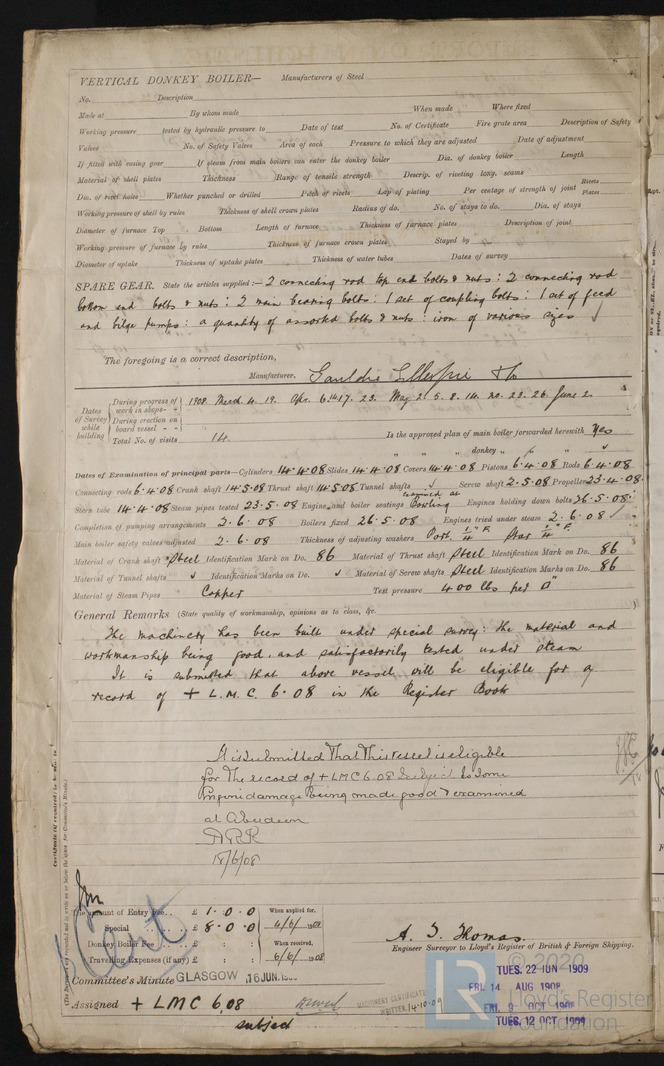 VERTICAL DONKEY BOILER— Manufacturers of Steel
No. Description
Made at By whom made When made Where fixed
Working pressure tested by hydraulic pressure to Date of test No. of Certificate Fire grate area Description of Safety
Valves No. of Safety Valves Area of each Pressure to which they are adjusted Date of adjustment
If fitted with easing gear If steam from main boilers can enter the donkey boiler Dia. of donkey boiler Length
Material of shell plates Thickness Range of tensile strength Descrip. of riveting long. seams
Dia. of rivet holes Whether punched or drilled Pitch of rivets Lap of plating Per centage of strength of joint Rivets Plates
Working pressure of shell by rules Thickness of shell crown plates Radius of do. No. of stays to do. Dia. of stays
Diameter of furnace Top Bottom Length of furnace Thickness of furnace plates Description of joint
Working pressure of furnace by rules Thickness of furnace crown plates Stayed by
Diameter of uptake Thickness of uptake plates Thickness of water tubes Dates of survey
SPARE GEAR. State the articles supplied:— 2 connecting rod top end bolts & nuts : 2 connecting rod
bottom end bolts & nuts : 2 main bearing bolts : 1 set of coupling bolts : 1 set of feed
and bilge pumps : a quantity of assorted bolts & nuts : iron of various sizes
The foregoing is a correct description,
Manufacturer. Gauldie Gillespie & Co
Dates of Survey while building
During progress of work in shops - - 1908. March 4. 19. Apr. 6. 14. 17. 23. May 2. 5. 8. 14. 20. 23. 26. June 2.
During erection on board vessel - -
Total No. of visits 14 Is the approved plan of main boiler forwarded herewith Yes
" " " donkey " "
Dates of Examination of principal parts—Cylinders 14.4.08 Slides 14.4.08 Covers 14.4.08 Pistons 6.4.08 Rods 6.4.08
Connecting rods 6.4.08 Crank shaft 14.5.08 Thrust shaft 14.5.08 Tunnel shafts ✓ Screw shaft 2.5.08 Propeller 23.4.08
Stern tube 14.4.08 Steam pipes tested 23.5.08 Engine and boiler seatings examined at Bowling Engines holding down bolts 26.5.08
Completion of pumping arrangements 2.6.08 Boilers fixed 26.5.08 Engines tried under steam 2.6.08
Main boiler safety valves adjusted 2.6.08 Thickness of adjusting washers Port. 1/4" F. Star 1/4" F.
Material of Crank shaft Steel Identification Mark on Do. 86 Material of Thrust shaft Steel Identification Mark on Do. 86
Material of Tunnel shafts ✓ Identification Marks on Do. ✓ Material of Screw shafts Steel Identification Marks on Do. 86
Material of Steam Pipes Copper Test pressure 400 lbs per □"
General Remarks (State quality of workmanship, opinions as to class, &c.
The machinery has been built under special survey : the material and
workmanship being good, and satisfactorily tested under steam
It is submitted that above vessel will be eligible for a
record of + L.M.C. 6.08 in the Register Book
It is submitted that this vessel is eligible
for the record of + LMC 6.08 subject to some
damage being made good & examined
at Aberdeen
18/6/08
The amount of Entry Fee .. £ 1 . 0 . 0 When applied for,
Special .. £ 8 . 0 . 0 4/6/1908
Donkey Boiler Fee .. £ : : When received,
Travelling Expenses (if any) £ : : 6/6/1908
A. T. Thomas.
Engineer Surveyor to Lloyd's Register of British & Foreign Shipping.
Committee's Minute GLASGOW 16 JUN.
Assigned + LMC 6.08
subject
MACHINERY CERTIFICATE
WRITTEN 14.10.09
TUES. 22 JUN 1909
FRI. 14 AUG 1908
FRI. 9 OCT 1908
TUES. 12 OCT 1909
© 2020
LR
Lloyd's Register
Foundation